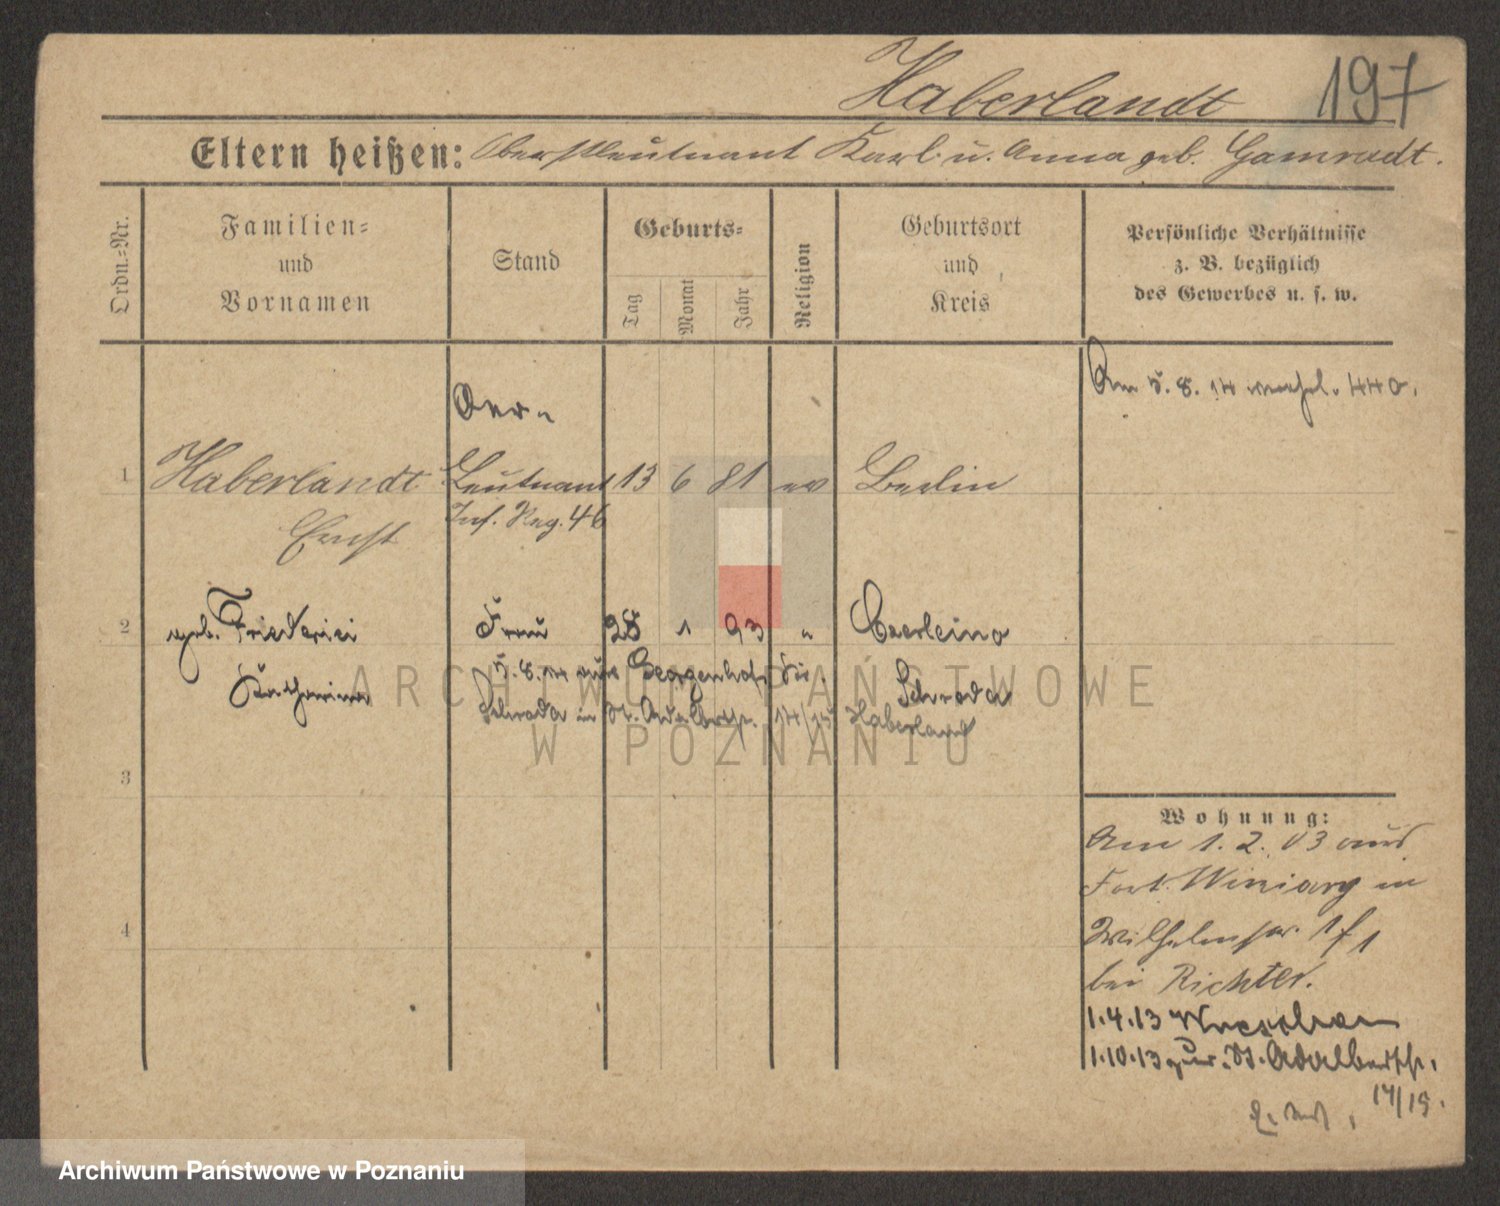 Haberlandt 197
Eltern heißen: Oberstleutnant Karl u. Anna geb. Gamradt.
Ordn.-Nr.
Familien-
und
Vornamen
Stand
Geburts-
Tag
Monat
Jahr
Religion
Geburtsort
und
Kreis
Persönliche Verhältnisse
z. B. bezüglich
des Gewerbes u. s. w.
Am 5. 8. 14 440.
1 Haberlandt Leutnant 13 6 81 ev Berlin
Ernst Inf. Reg. 46
2 geb. Friederici Frau 28 1 93 " Czerleino
Katharina Schroda
5. 8. 14 aus Georgenhof
Schroda in St. Adalbertstr. 14/15 Haberland
3
4
Wohnung:
Am 1. 2. 03 aus
Fort Winiary in
Wilhelmstr.
bei Richter.
1.4.13 Wreschen
1.10.13 zur. St. Adalbertstr.
14/15.
ARCHIWUM PAŃSTWOWE
W POZNANIU
Archiwum Państwowe w Poznaniu